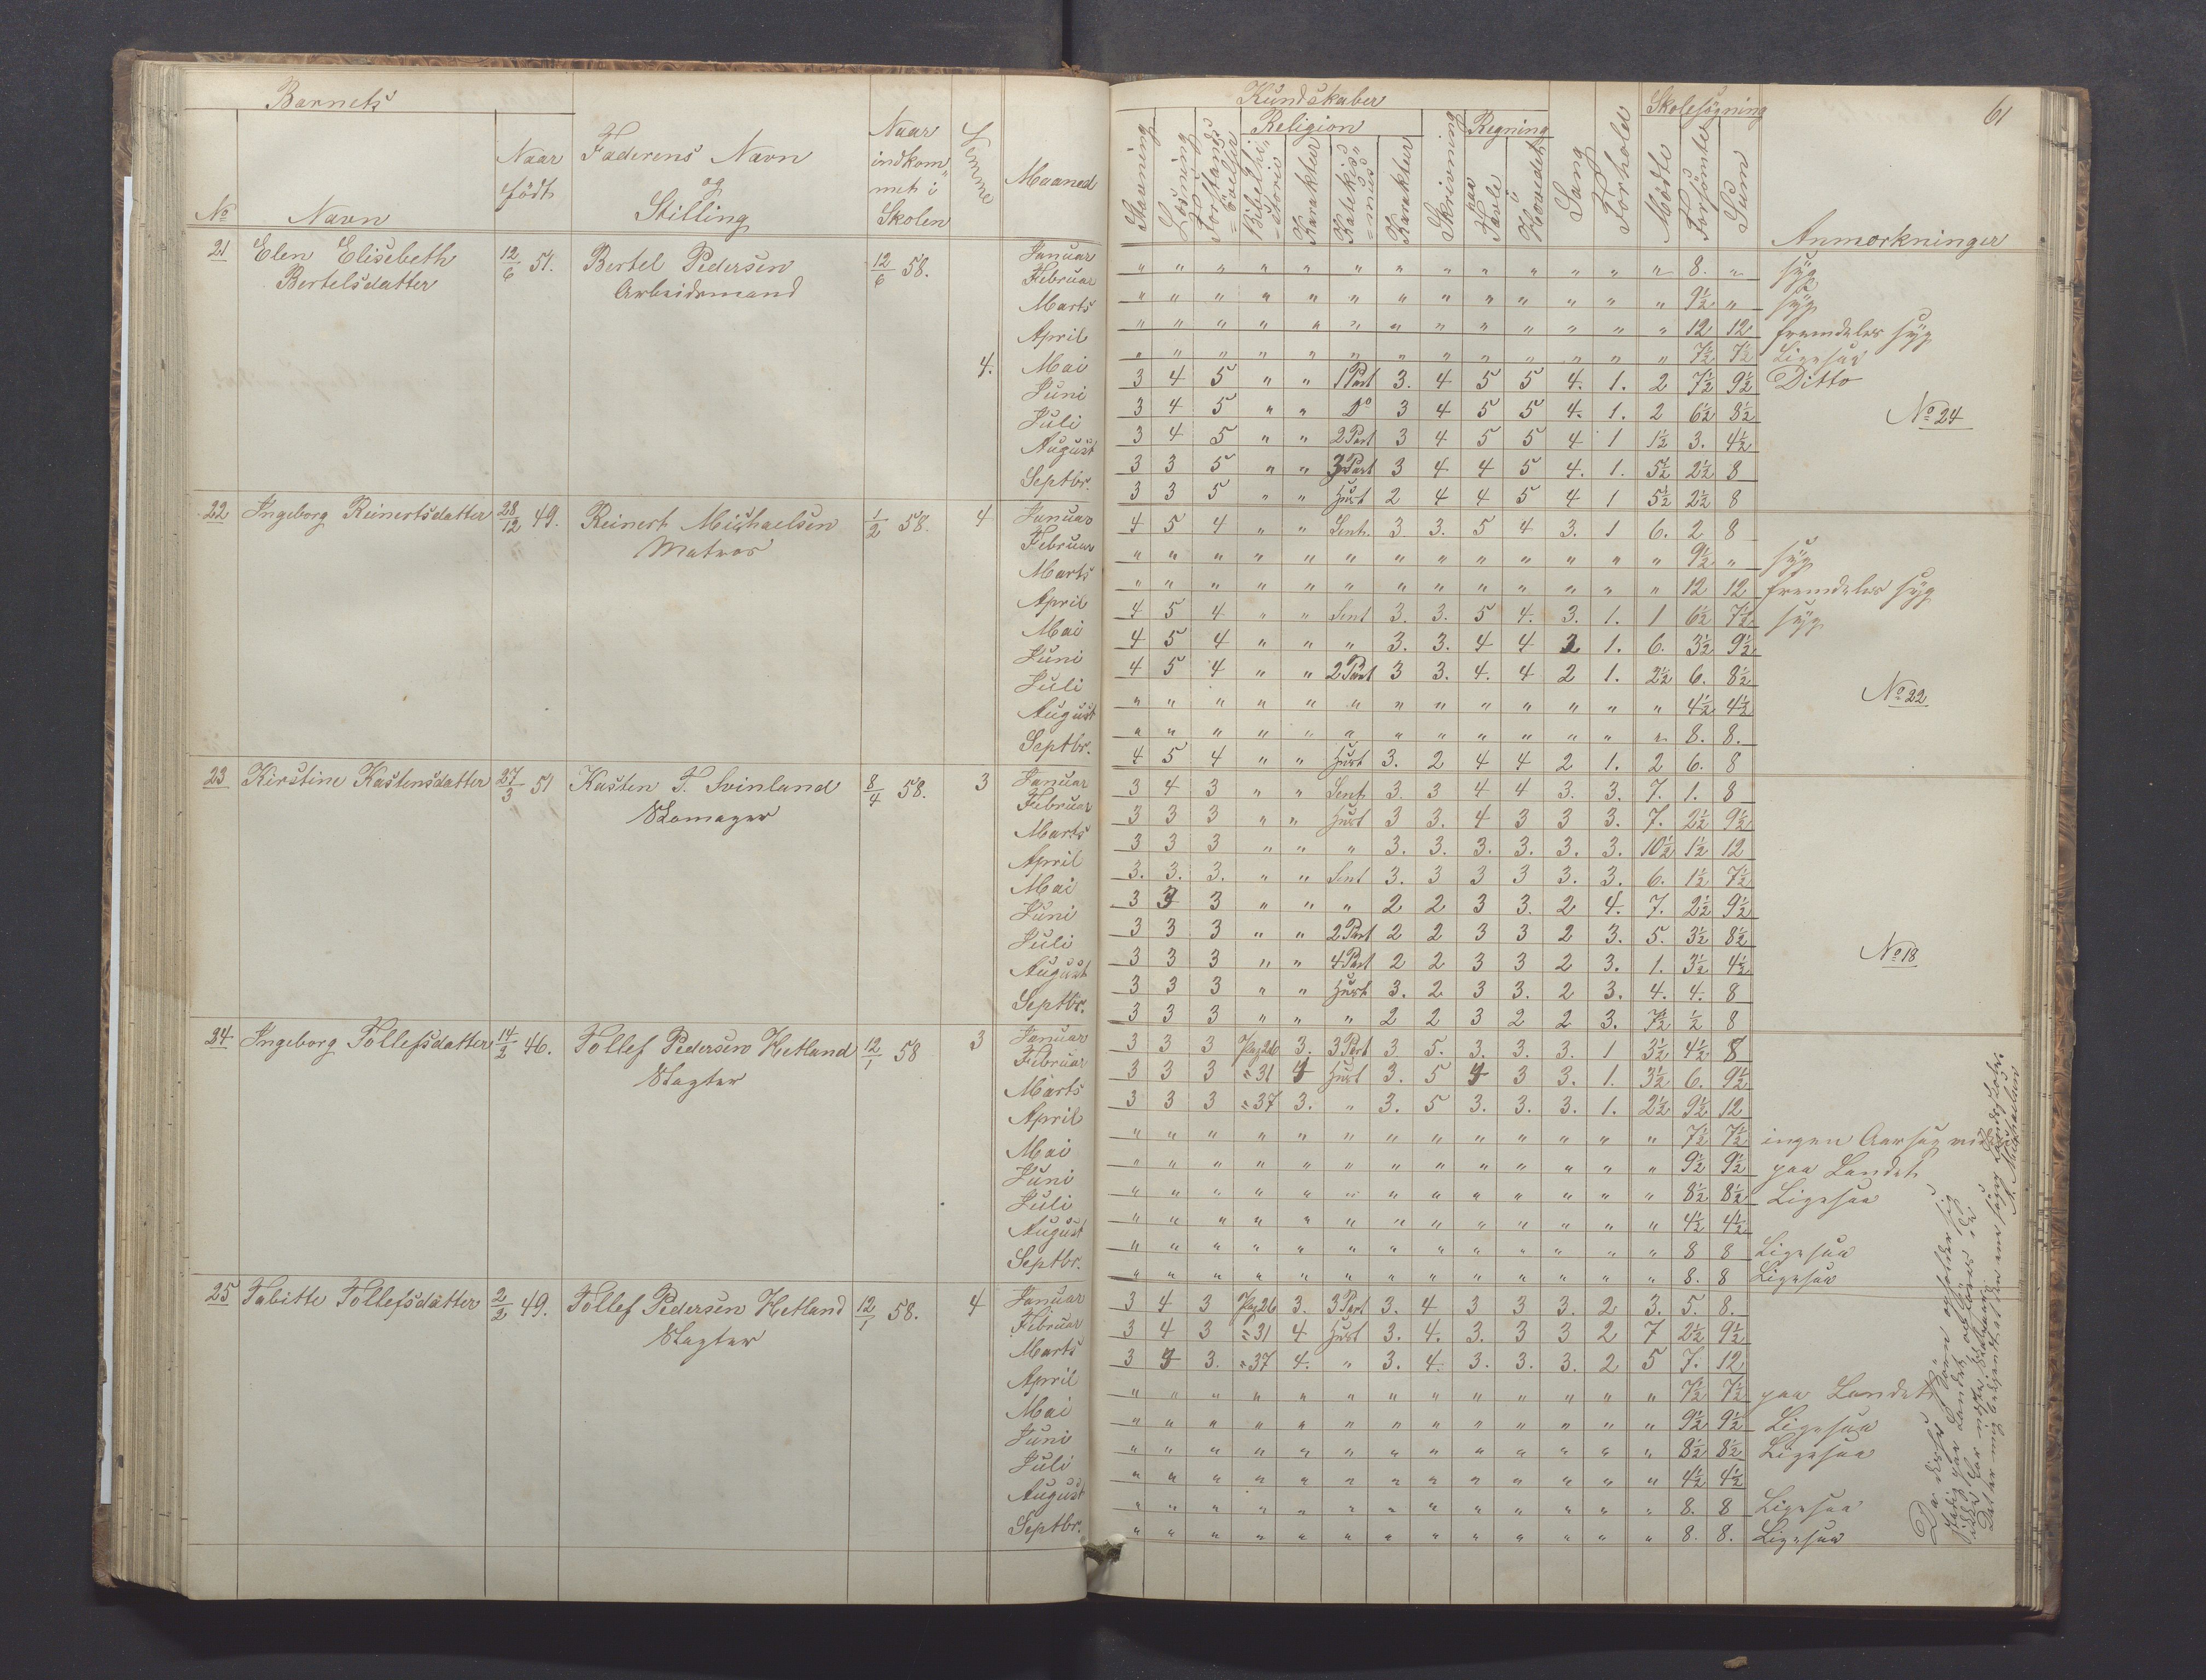 Barnets
No
Navn
Naar
födt
Faderens Navn
og
Stilling
Naar
indkom
met i
Skolen
Evne
Maaned
21 Elen Elisebeth 12/6 51. Bertel Pedersen 12/6 58.
Bertelsdatter Arbeidsmand
4.
Januar
Februar
Marts
April
Mai
Juni
Juli
August
Septbr.
22 Ingeborg Reinertsdatter 28/12 49. Reinert Michaelsen 1/2 58. 4
Matros
Januar
Februar
Marts
April
Mai
Juni
Juli
August
Septbr.
23 Kirstine Kastensdatter 27/3 51 Kasten T. Svinland 8/4 58. 3
Skomager
Januar
Februar
Marts
April
Mai
Juni
Juli
August
Septbr.
24 Ingeborg Tollefsdatter 14/2 46. Tollef Pedersen Hetland 12/1 58 3
Slagter
Januar
Februar
Marts
April
Mai
Juni
Juli
August
Septbr.
25 Tabitte Tollefsdatter 2/2 49. Tollef Pedersen Hetland 12/1 58. 4
Slagter
Januar
Februar
Marts
April
Mai
Juni
Juli
August
Septbr.
61
Kundskaber
Religion
Regning
Skolesögning
Stavning
Læsning
Forstands
övelse
Bibelhi
storie
Karakter
Katekis
mus
Karakter
Skrivning
paa
Tavle
Hovedet
Sang
Forhold
Mödte
Forsömte
Sum
Anmærkninger
" " " " " " " " " " " " " 8. " syg
" " " " " " " " " " " " " 9½ " syg
" " " " " " " " " " " " " 12 12 fremdeles syg
" " " " " " " " " " " " " 7½ 7½ Ligesaa
3 4 5 " " 1 Part 3. 4 5 5 4. 1. 2 7½ 9½ Ditto
3 4 5 " " Do 3 4 5 5 4. 1. 2 6½ 8½ No 24
3 4 5 " " 2 Part 3 4 5 5 4 1 1½ 3. 4½
3 3 5 " " 3 Part 3 4 4 5 4. 1. 5½ 2½ 8
3 3 5 " " Hust 2 4 4 5 4 1 5½ 2½ 8
4 5 4 " " Sent. 3 3. 5 4 3. 1 6. 2 8
" " " " " " " " " " " " " 9½ " syg
" " " " " " " " " " " " " 12 12 fremdeles syg
4 5 4 " " Sent 3. 3. 5 4. 3. 1. 1 6½ 7½ syg
4 5 4 " " " 3. 3. 4 4 2 1. 6. 3½ 9½
4 5 4 " " 2 Part 3 3. 4. 4 2 1. 2½ 6. 8½
" " " " " " " " " " " " " 4½ 4½ No 22
" " " " " " " " " " " " " 8. 8.
4 5 4 " " Hust 3. 2 4 4 2 1. 2 6. 8
3 4 3 " " Sent. 3. 3 4 4 3. 3. 7. 1. 8
3 3 3 " " Hust 3 3. 4 3 3 3. 7. 2½ 9½
3 3 3 " " " 3. 3. 3. 3. 3. 3. 10½ 1½ 12
3. 3. 3. " " Sent 3. 3 3 3 3. 3. 6. 1½ 7½
3 3 3 " " " 2 2 3 3. 2 4. 7. 2½ 9½
3 3 3 " " 2 Part 2 2 3 3 2 3. 5. 3½ 8½
3 3 3 " " 4 Part 2 2 3 3 2 3. 1. 3½ 4½ No 18
3 3 3 " " Hust 3. 2 3 3. 2 3. 4. 4. 8
3 3 3 " " " 2 2 3 2 2 3. 7½ ½ 8
3 3 3 Pag 26 3. 3 Part 3 5. 3. 3. 3. 1 3½ 4½ 8
3 3 3 " 31 4 Hust 3. 5 4 3 3. 1. 3½ 6. 9½
3 3 3 " 37 3. " 3. 5 3. 3. 3. 1. 2½ 9½ 12
" " " " " " " " " " " " " 7½ 7½ ingen Aarsag
" " " " " " " " " " " " " 9½ 9½ paa Landet
" " " " " " " " " " " " " 8½ 8½ Ligesaa
" " " " " " " " " " " " " 4½ 4½
" " " " " " " " " " " " " 8 8 Ligesaa
" " " " " " " " " " " " " 8. 8 Ligesaa
3 4 3 Pag 26 3. 3 Part 3. 4 3 3 3. 2 3. 5. 8.
3 4 3 " 31 4 Hust 3. 4. 3. 3 3 2 7 2½ 9½
3 4 3. " 37 4. " 3. 4. 3. 3. 3. 2 5 7. 12
" " " " " " " " " " " " " 7½ 7½ paa Landet
" " " " " " " " " " " " " 9½ 9½ Ligesaa
" " " " " " " " " " " " " 8½ 8½ Ligesaa
" " " " " " " " " " " " " 4½ 4½
" " " " " " " " " " " " " 8. 8 Ligesaa
" " " " " " " " " " " " " 8. 8. Ligesaa
Da disse Börn opholder sig
stadig paa Landet, anföres de
ikke her næste Skoleaar.
Det er mig bekjendt at den ene söger Landsskolen.
Michaelsen